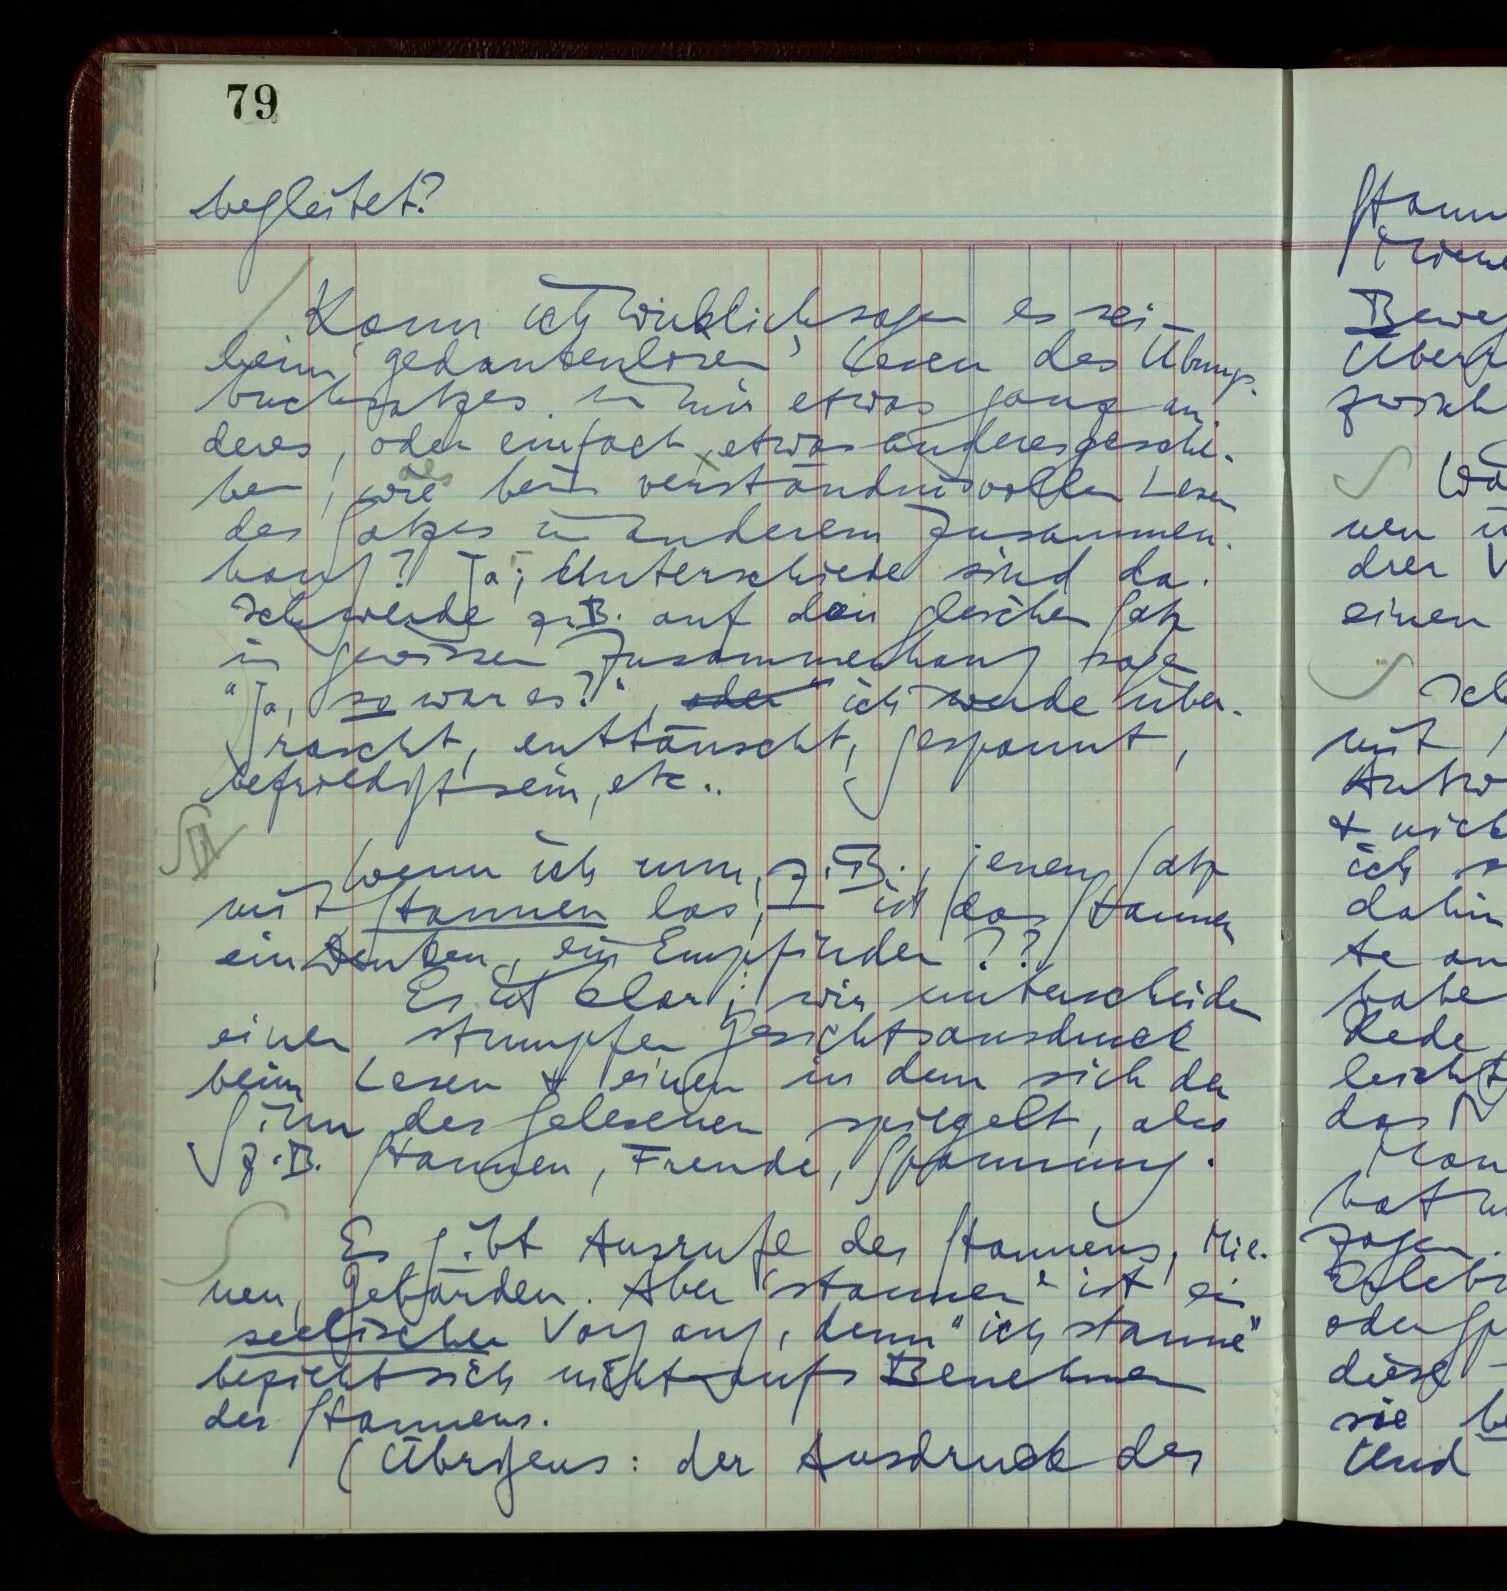 79
begleitet?
Kann ich wirklich sagen es sei
beim ,gedankenlosen' Lesen des Übungs-
buchsatzes in mir etwas ganz an-
deres, oder einfach etwas anderes gesche-
hen, wie beim verständnisvollen Lesen
des Satzes in anderem Zusammen-
hang? Ja; Unterschiede sind da.
Ich werde z.B. auf den gleichen Satz
in gewissem Zusammenhang sagen
"Ja, so war es?", oder ich werde über-
rascht, enttäuscht, gespannt,
befriedigt sein, etc..
Wenn ich nun, z.B., jenen Satz
mit Staunen las, – ist das Staunen
ein Denken, ein Empfinden??
Es ist klar: wir unterscheiden
einen stumpfen Gesichtsausdruck
beim Lesen & einen in dem sich der
Sinn des Gelesenen spiegelt, also
z.B. Staunen, Freude, Spannung.
Es gibt Ausrufe des Staunens, Mie-
nen, Gebärden. Aber "staunen" ist ein
seelischer Vorgang, denn "ich staune"
bezieht sich nicht aufs Benehmen
des Staunens.
(Übrigens: der Ausdruck des
Staun
Bewe
einen
mit
Antw
& nich
ich
dahin
te an
habe
Rede
leicht
das
hat
oder
diese
sie
Und